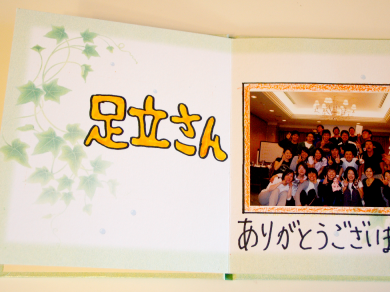 足立さん
ありがとうございま